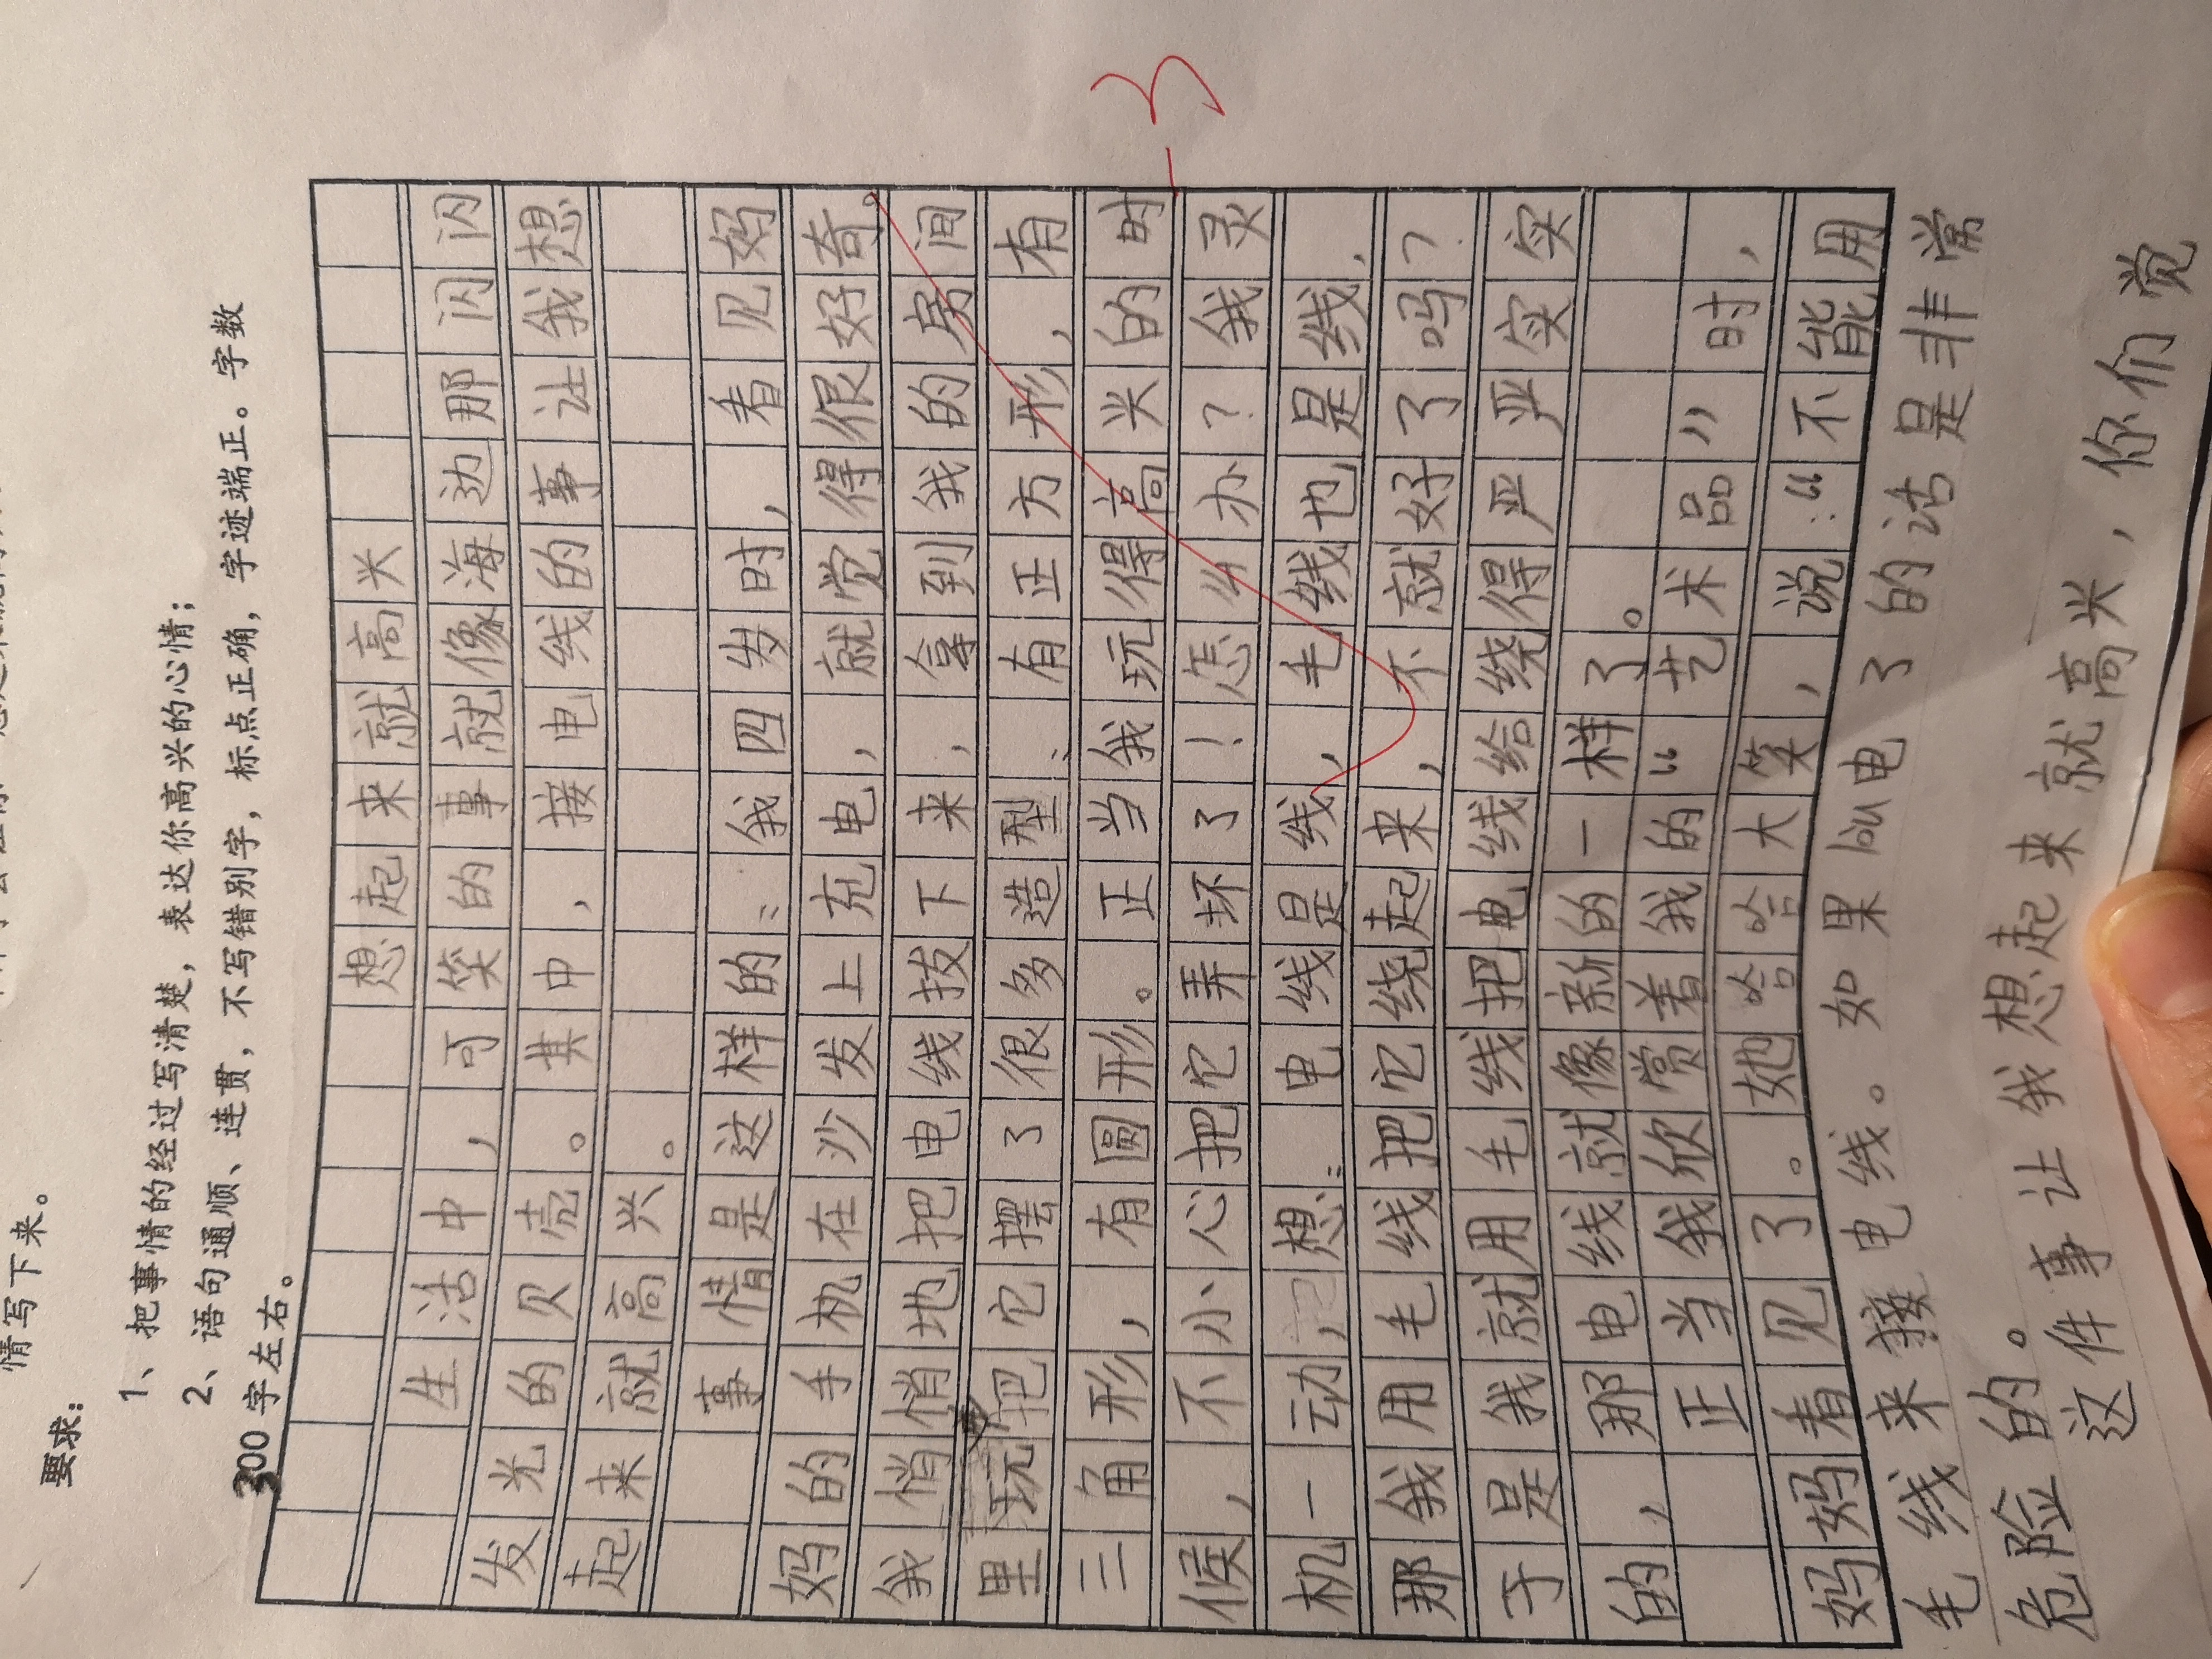 情写下来。
要求：
1、把事情的经过写清楚，表达你高兴的心情；
2、语句通顺、连贯，不写错别字，标点正确，字迹端正。字数
300字左右。
想起来就高兴
生活中，可笑的事就像海边那闪闪
发光的贝壳。其中，接电线的事让我想
起来就高兴。
事情是这样的：我四岁时，看见妈
妈的手机在沙发上充电，就觉得很好奇。
我悄悄地把电线拔下来，拿到我的房间
里玩，把它摆了很多造型：有正方形，有
三角形，有圆形。正当我玩得高兴的时
候，不小心把它弄坏了！怎么办？我灵
机一动，想：电线是线，毛线也是线，
那我用毛线把它绕起来，不就好了吗？
于是我就用毛线把电线给绕得严严实实
的，那电线就像新的一样了。
正当我欣赏着我的“艺术品”时，
妈妈看见了。她哈哈大笑，说：“不能用
毛线来接电线。如果lòu电了的话是非常
危险的。
这件事让我想起来就高兴，你们觉
-3